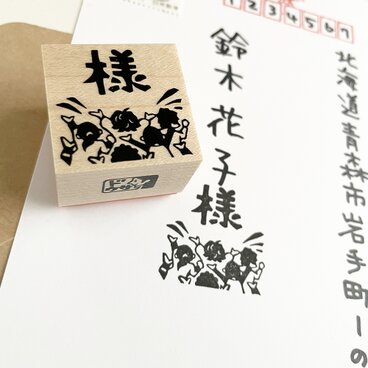 様
1234567
北海道青森市岩手町一の
鈴木花子様